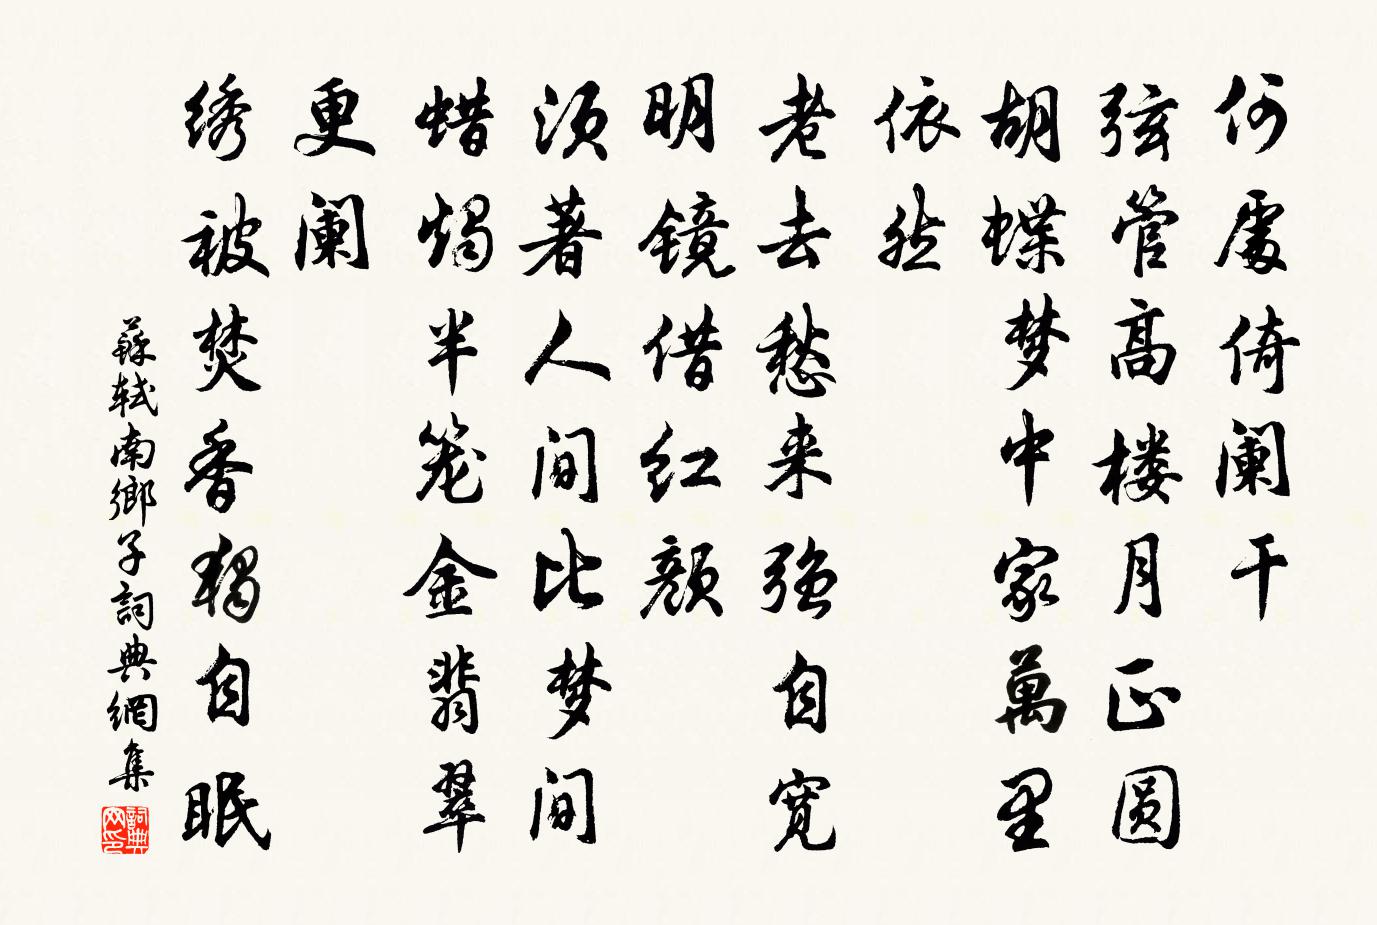 何處倚阑干
弦管高楼月正圆
胡蝶梦中家萬里
依然
老去愁来强自宽
明镜借红颜
须著人间比梦间
蜡烛半笼金翡翠
更阑
绣被焚香独自眠
蘇轼南鄉子詞典網集
詞典网印